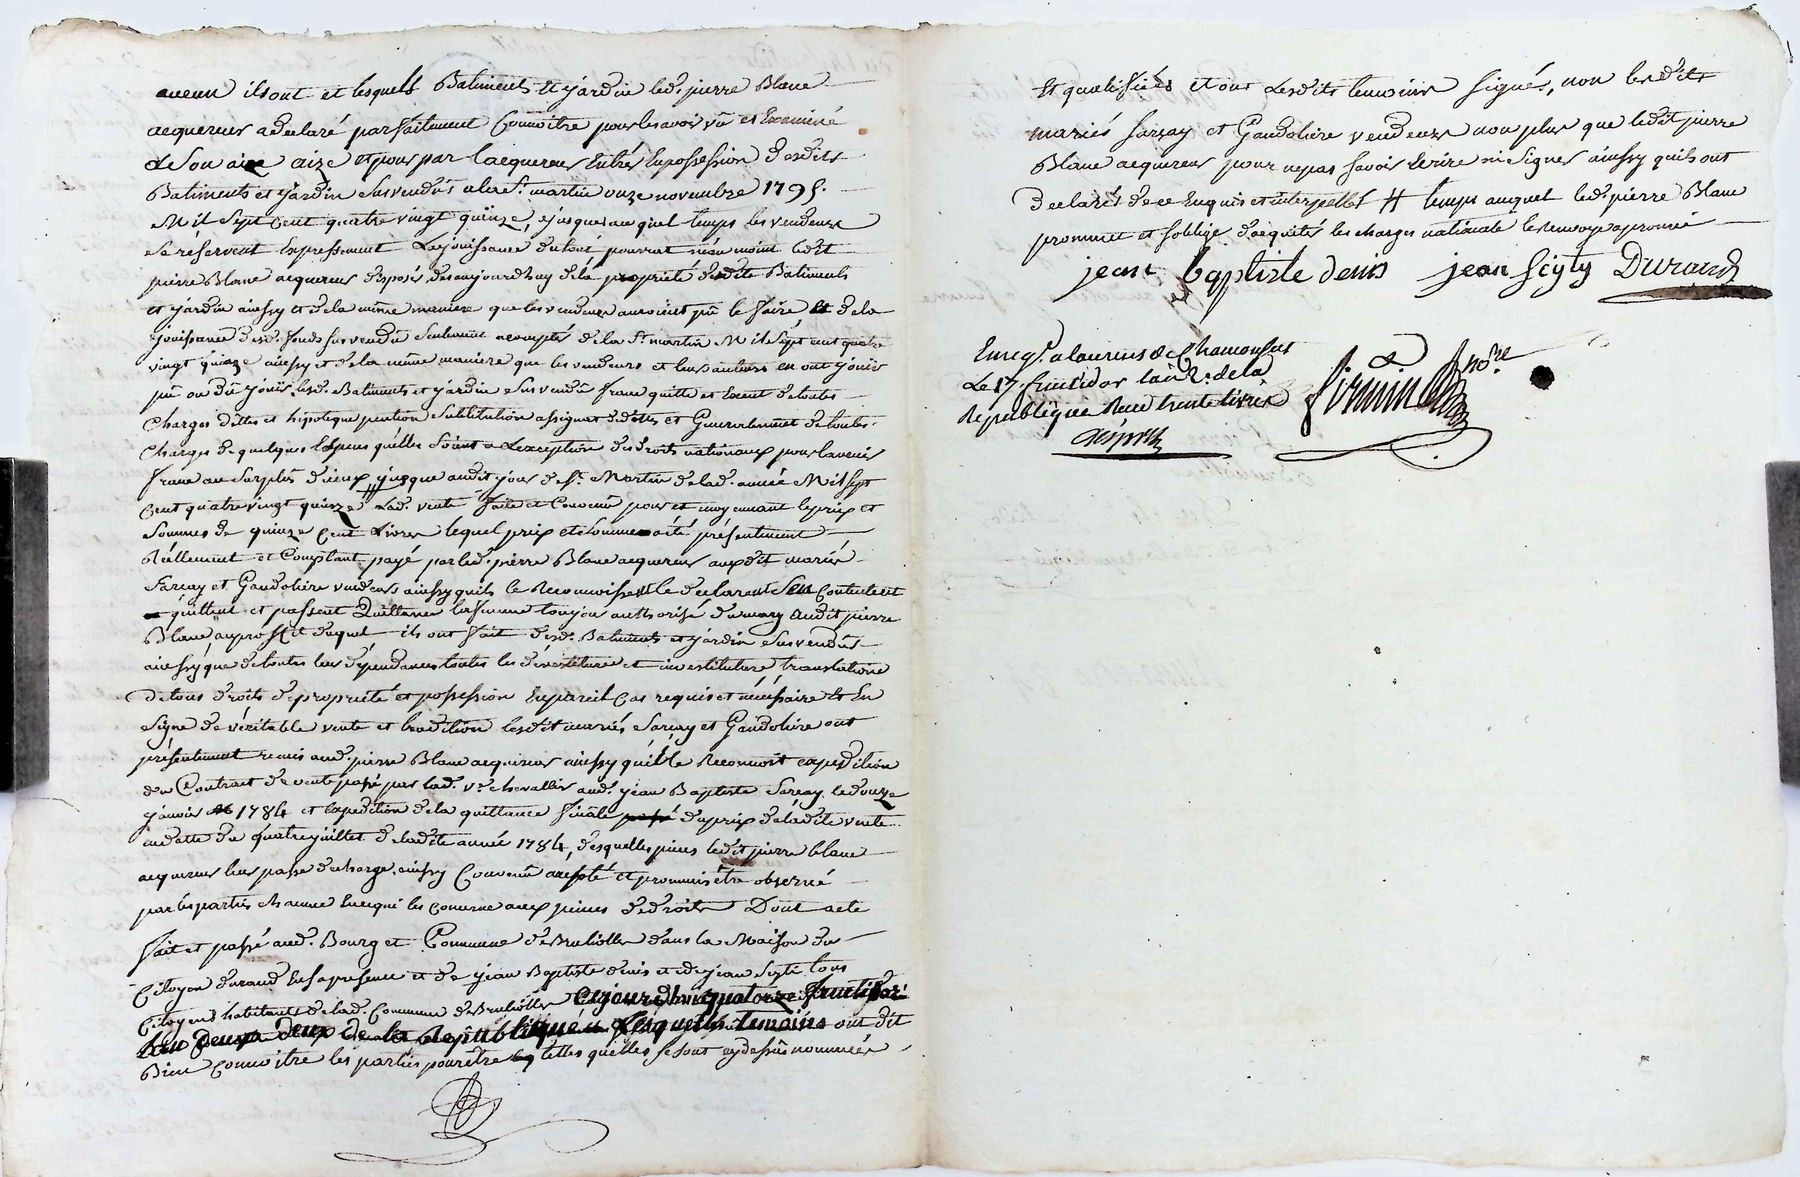 aucun ils ont et lesquels Batiments et jardin led. pierre Blanc
acquereur a declaré parfaitement Connoitre pour les avoir vû et Examiné
a Son aize et pour par l'acquereur Entrer En possession desdits
Batiments et jardin susvendus a la St. martin onze novembre 1795.
Mil Sept Cent quatre vingt quinze, jusques au quel temps les vendeurs
se réservent Expressement La jouissance du tout pourrat néanmoint ledit
pierre Blanc acquereur disposer des aujourdhuy de la propriété desdits Batiments
et jardin ainssy et de la même maniere que les vendeurs auroient pû le faire et de la
jouissance desd. fonds susvendu seulement a compter de la St. martin Mil Sept cent quatre
vingt quinze ainssy et de la même maniere que les vendeurs et leurs auteurs en ont jouir
pû ou dû jouir lesd. Batiments et jardin susvendu franc quitte et Exent de toutes
Charges dettes et hipoteque pention Substitution assignat de dettes et Generalement de toutes
Charges de quelques Especes quelles soient a L'exception des droits nationaux pour l'avenir
franc au Surplus d'iceux jusque audit jour de St. Martin de lad. année Mil Sept
Cent quatre vingt quinze Lad. vente faite et Convenu pour et moyennant le prix et
Sommes de quinze Cent Livres lequel prix et somme a été présentement
Réellement et Comptant payé par led. pierre Blanc acquereur auxdit mariés
Sarsay et Gaudoliere vendeurs ainssy quils le Reconnoissent le declarent S'en Contentent
quittent et passent Quittance la femme toujour authorisé du mary audit pierre
Blanc au proffit duquel ils ont fait desd. Batiments et jardin susvendus
ainssy que de toutes leurs dépendances toutes les dévestitures et investitures translatives
de tous droits de propriété et possession En pareil Cas requis et nécessaire Et En
Signe de véritable vente et tradition lesdit mariés Sarsay et Gaudoliere ont
présentement remis aud. pierre Blanc acquereur ainssy quil le Reconnoit expedition
du Contrat de vente passé par lad. ve. chevallier aud. jean Baptiste Sarsay le douze
janvier 1784 et l'expedition de la quittance finale du prix de ladite vente
en datte du quatre juillet de ladite année 1784, desquelles pieces ledit pierre blanc
acquereur leur passe decharge, ainssy Convenu accepté et prommis être observé
par les parties chacune En ce qui les concerne aux peines de droits Dont acte
fait et passé aud. Bourg et Commune de Brullolles dans la Maison du
Citoyen durand En sa presence et de jean Baptiste denis et de jean Scyty tous
Citoyens habitants de lad. Commune de Brullolles cejourdhuy quatorze fructidor
L'an deux de la Republique Lesquels temoins ont dit
Bien Connoitre les parties pour être telles quelles se sont cy dessus nommées
Et qualifiées et ont Lesdits temoins signés, non lesdits
mariés Sarsay et Gaudoliere vendeurs non plus que ledit pierre
Blanc acquereur pour ne pas savoir Ecrire ni Signer ainssy quils ont
declarés de ce Enquis et interpellés # temps auquel led. pierre Blanc
prommet et s'oblige d'acquiter les charges nationale le renvoy approuvé
jean baptiste denis jean scyty Durand
Enregt. a laurens de Chamousset
Le 17 fructidor l'an 2e. de la
République Reçu trente livres
firmin nore